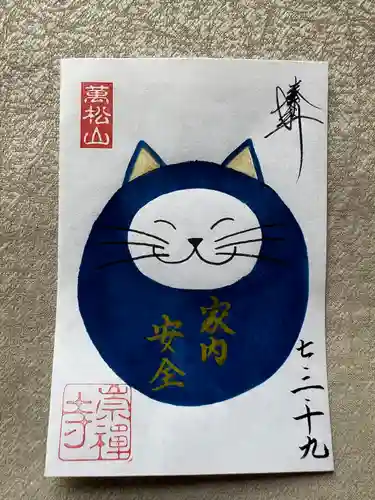 奉拝
七・三・十九
家内
安全
萬松山
崇禪
寺